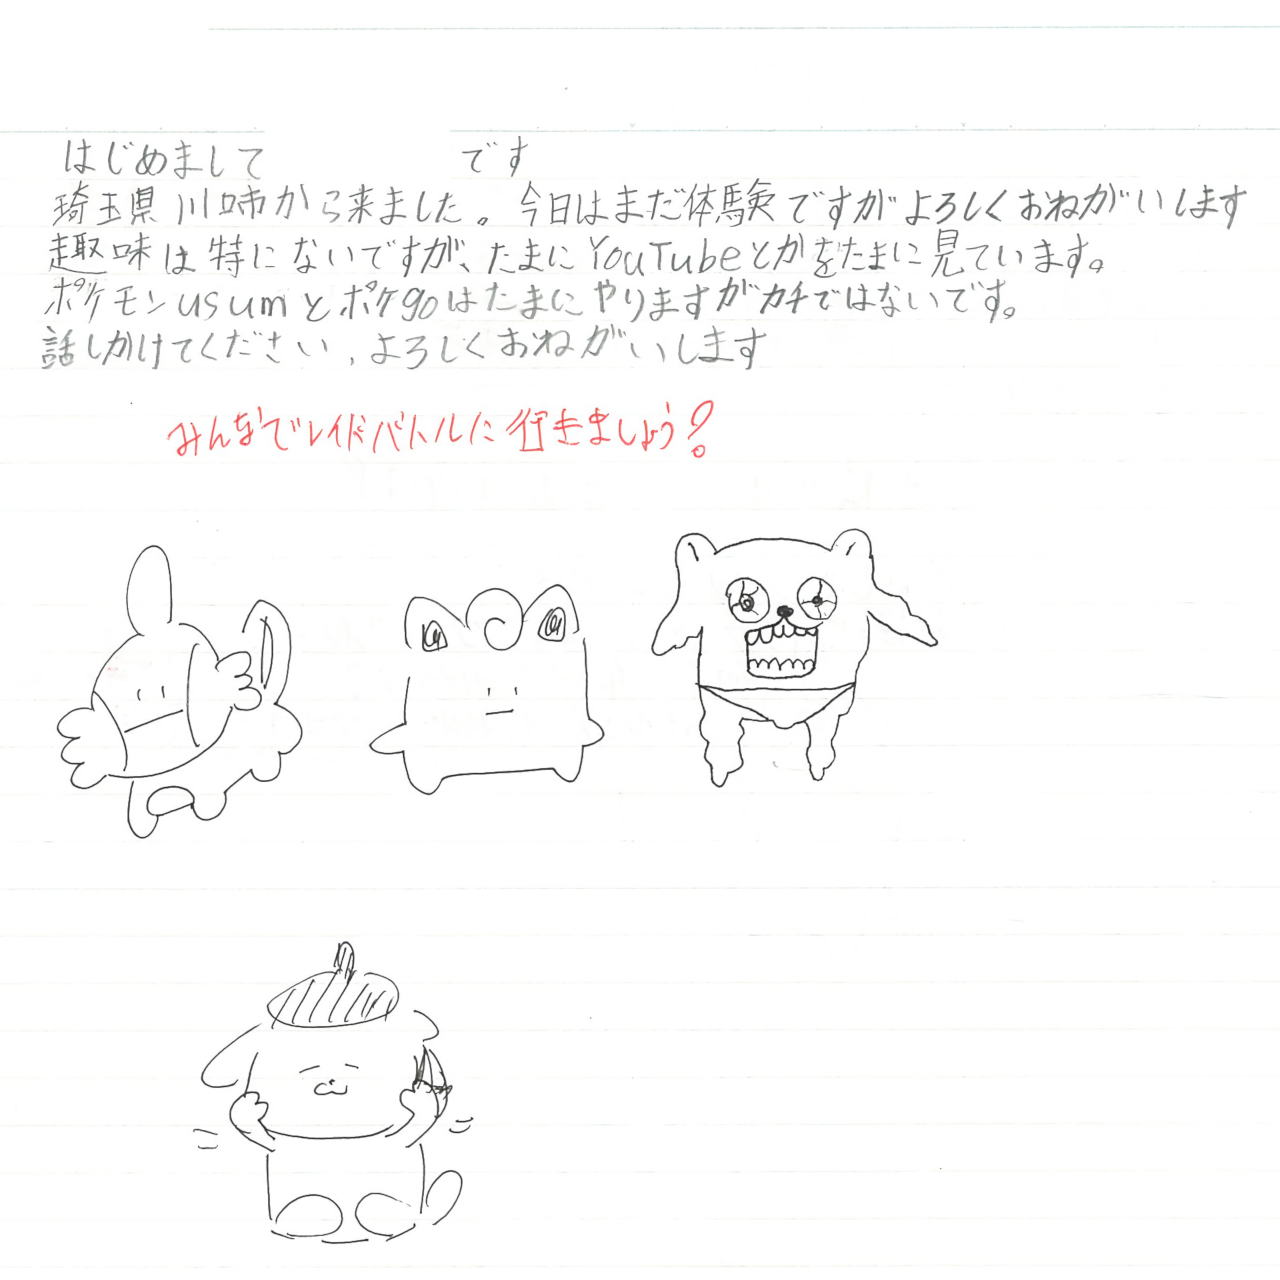 はじめまして です
埼玉県川口市から来ました。今日はまだ体験ですがよろしくおねがいします
趣味は特にないですが、たまにYouTubeとかをたまに見ています。
ポケモンusumとポケgoはたまにやりますがガチではないです。
話しかけてください、よろしくおねがいします
みんなでレイドバトルに行きましょう!